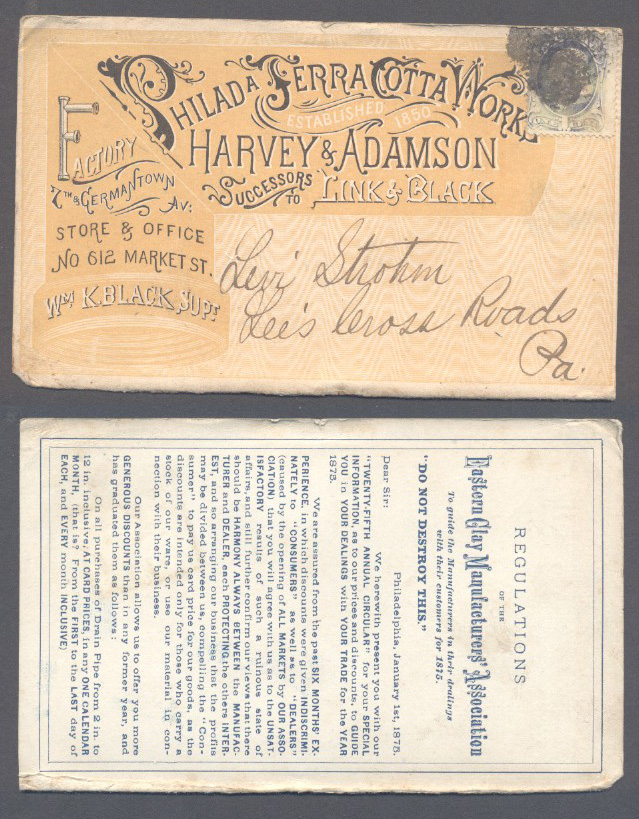 PHILADA TERRA COTTA WORKS
ESTABLISHED 1850
HARVEY & ADAMSON
SUCCESSORS TO LINK & BLACK
FACTORY
7TH & GERMANTOWN AV:
STORE & OFFICE
NO 612 MARKET ST.
WM K. BLACK, SUPT
Levi Strohm
Lee's Cross Roads
Pa.
REGULATIONS
OF THE
Eastern Clay Manufacturers' Association
To guide the Manufacturers in their dealings
with their customers for 1875.
"DO NOT DESTROY THIS."
Philadelphia, January 1st, 1875.
Dear Sir:
We herewith present you with our
"TWENTY-FIFTH ANNUAL CIRCULAR" for your SPECIAL
INFORMATION, as to our prices and discounts, to GUIDE
YOU in YOUR DEALINGS with YOUR TRADE for the YEAR
1875.
We are assured from the past SIX MONTHS' EX-
PERIENCE, in which discounts were given INDISCRIMI-
NATELY to "CONSUMERS" as well as to "DEALERS"
(caused by the opening of ALL MARKETS by OUR ASSO-
CIATION) that you will agree with us as to the UNSAT-
ISFACTORY results of such a ruinous state of
affairs, and still further confirm our views that there
should be HARMONY ALWAYS BETWEEN the MANUFAC-
TURER and DEALER, each PROTECTING the others INTER-
EST, and so arranging our business that the profits
may be divided between us, compelling the "Con-
sumer" to pay us card price for our goods, as the
discounts are intended only for those who carry a
stock of our ware, or use our material in con-
nection with their business.
Our Association allows us to offer you more
GENEROUS DISCOUNTS than in any former year, and
has graduated them as follows:
On all purchases of Drain Pipe from 2 in. to
12 in. inclusive, AT CARD PRICES, in any ONE CALENDAR
MONTH, (that is? From the FIRST to the LAST day of
EACH, and EVERY month INCLUSIVE)